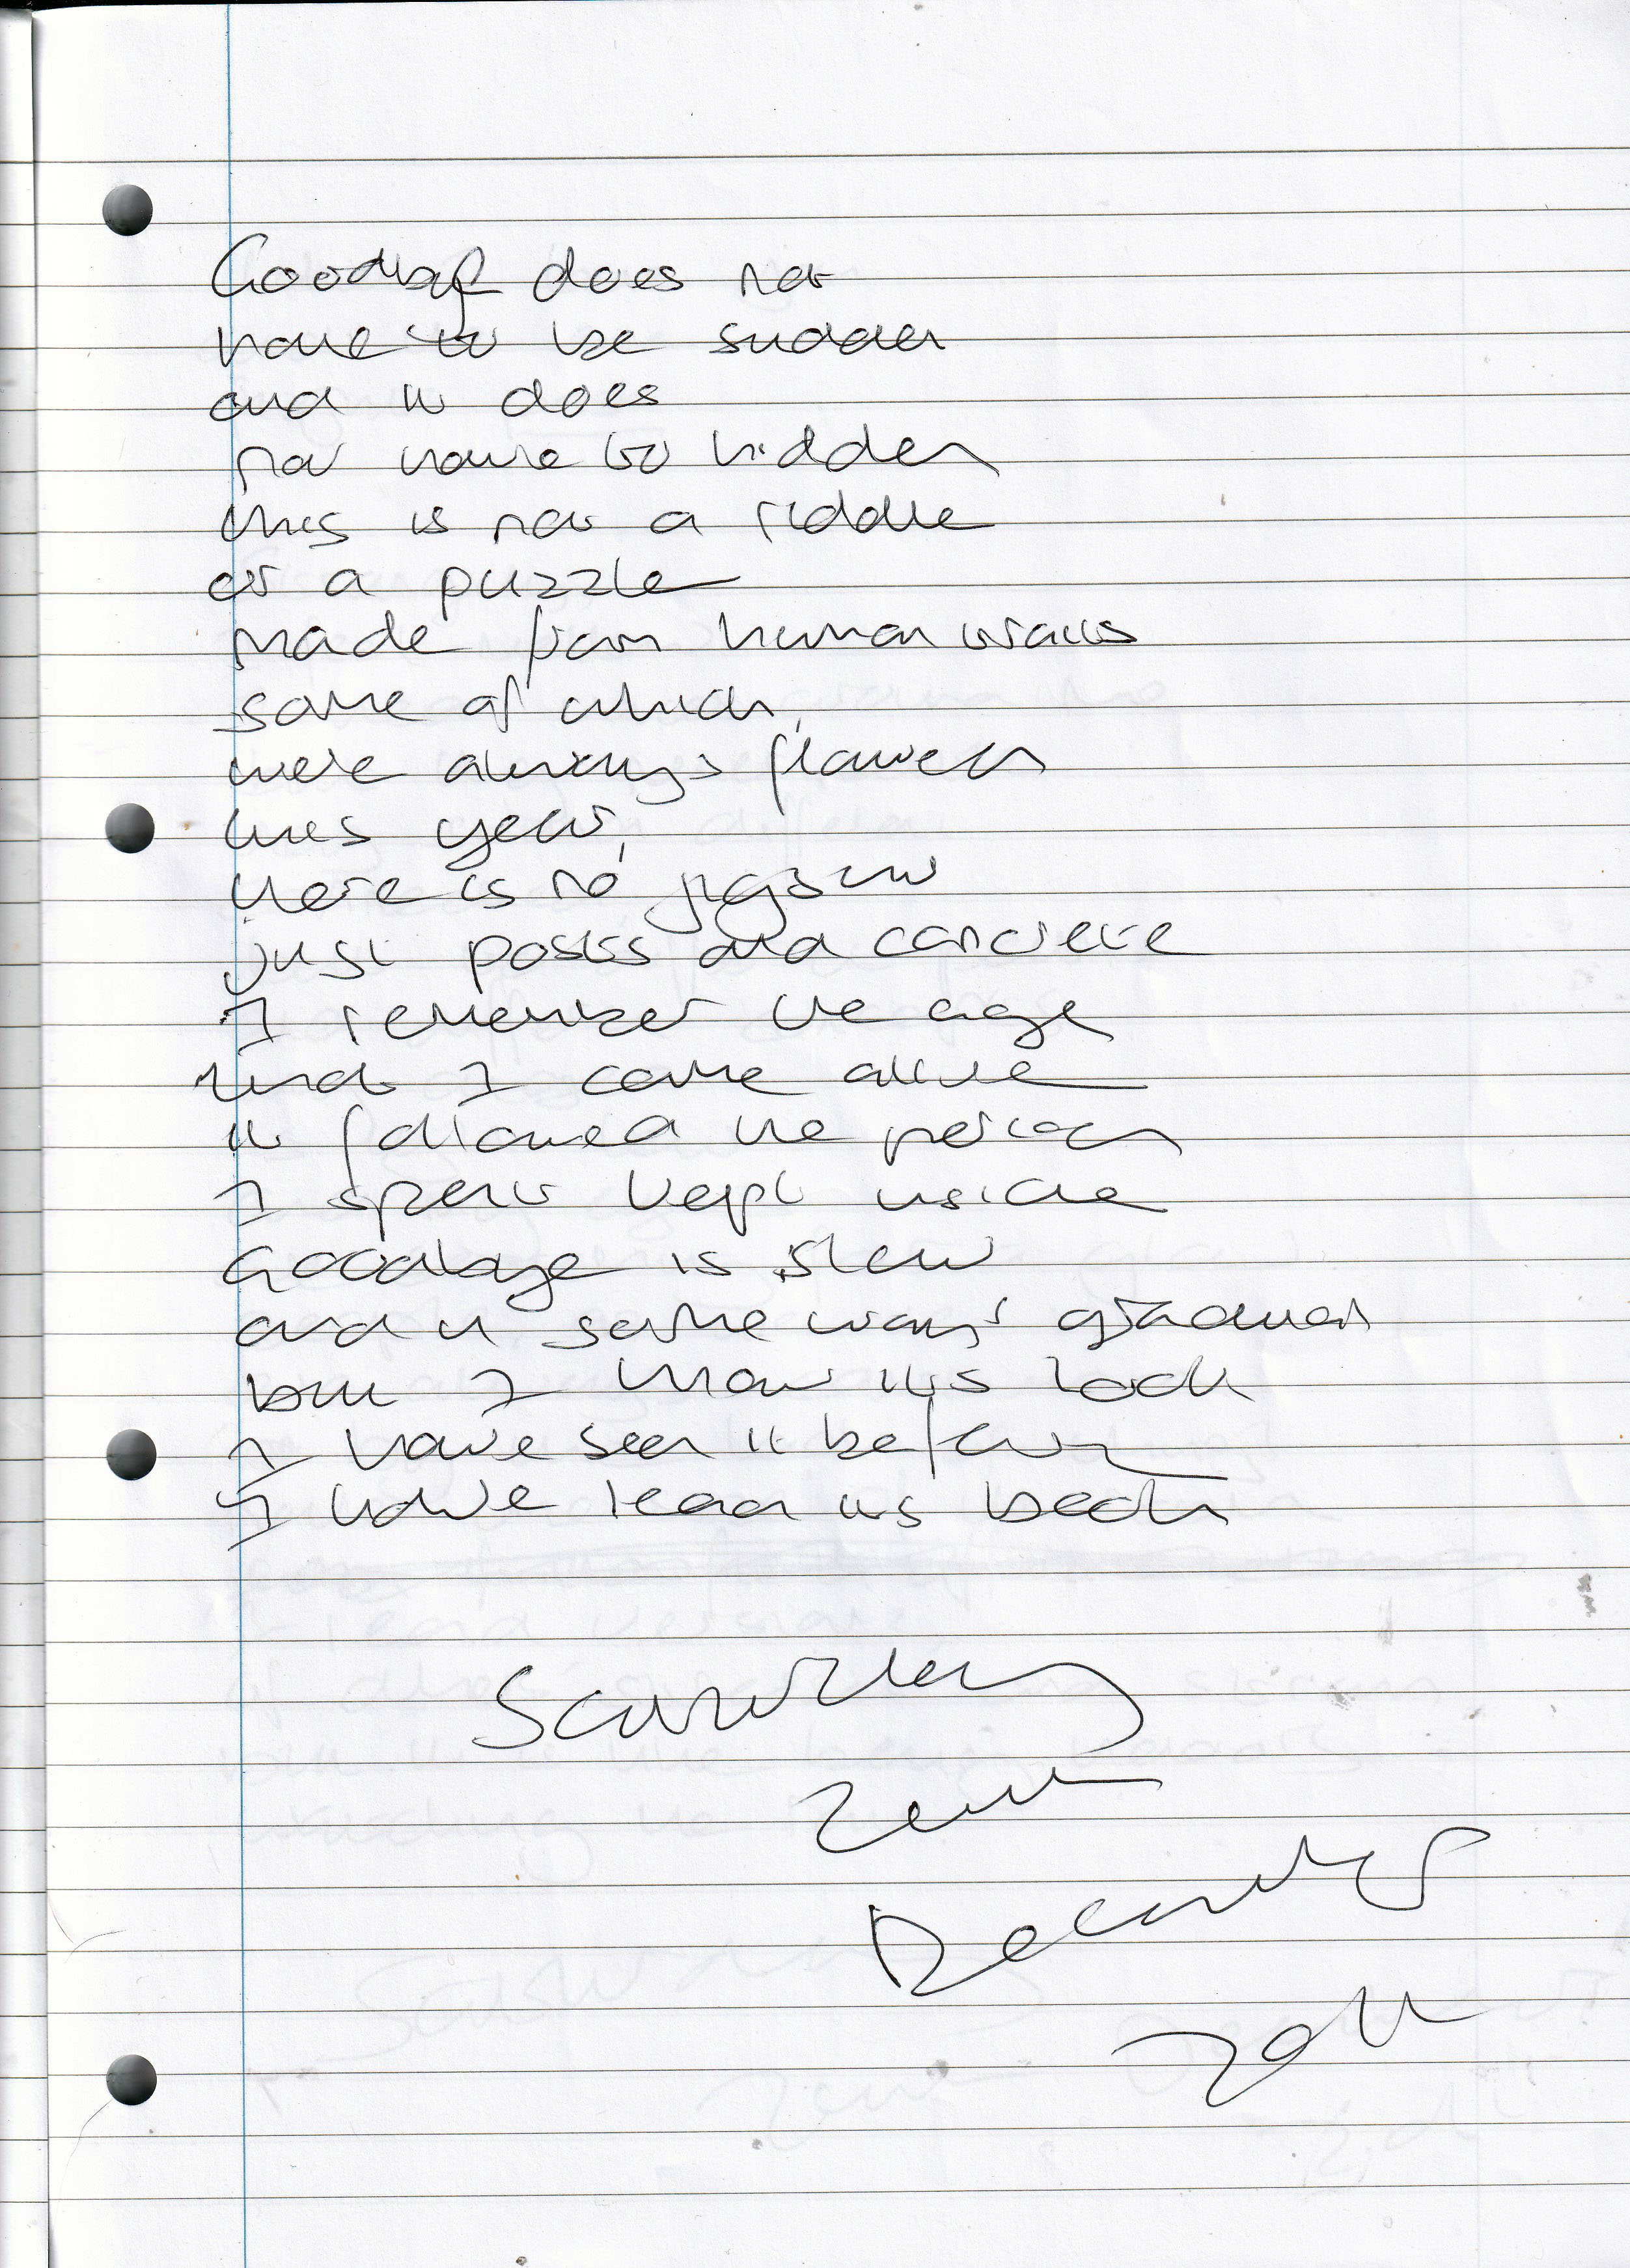 Goodbye does not
have to be sudden
and it does
not have to hidden
this is not a riddle
or a puzzle
made from human walls
some of which,
were always flowers
this year,
there is no jigsaw
just posts and concrete
I remember the age
that I came alive
it followed the period
I spent kept inside
Goodbye is slow
and in some ways gradual
but I know its look
I have seen it before
I have read its book
Saturday
December